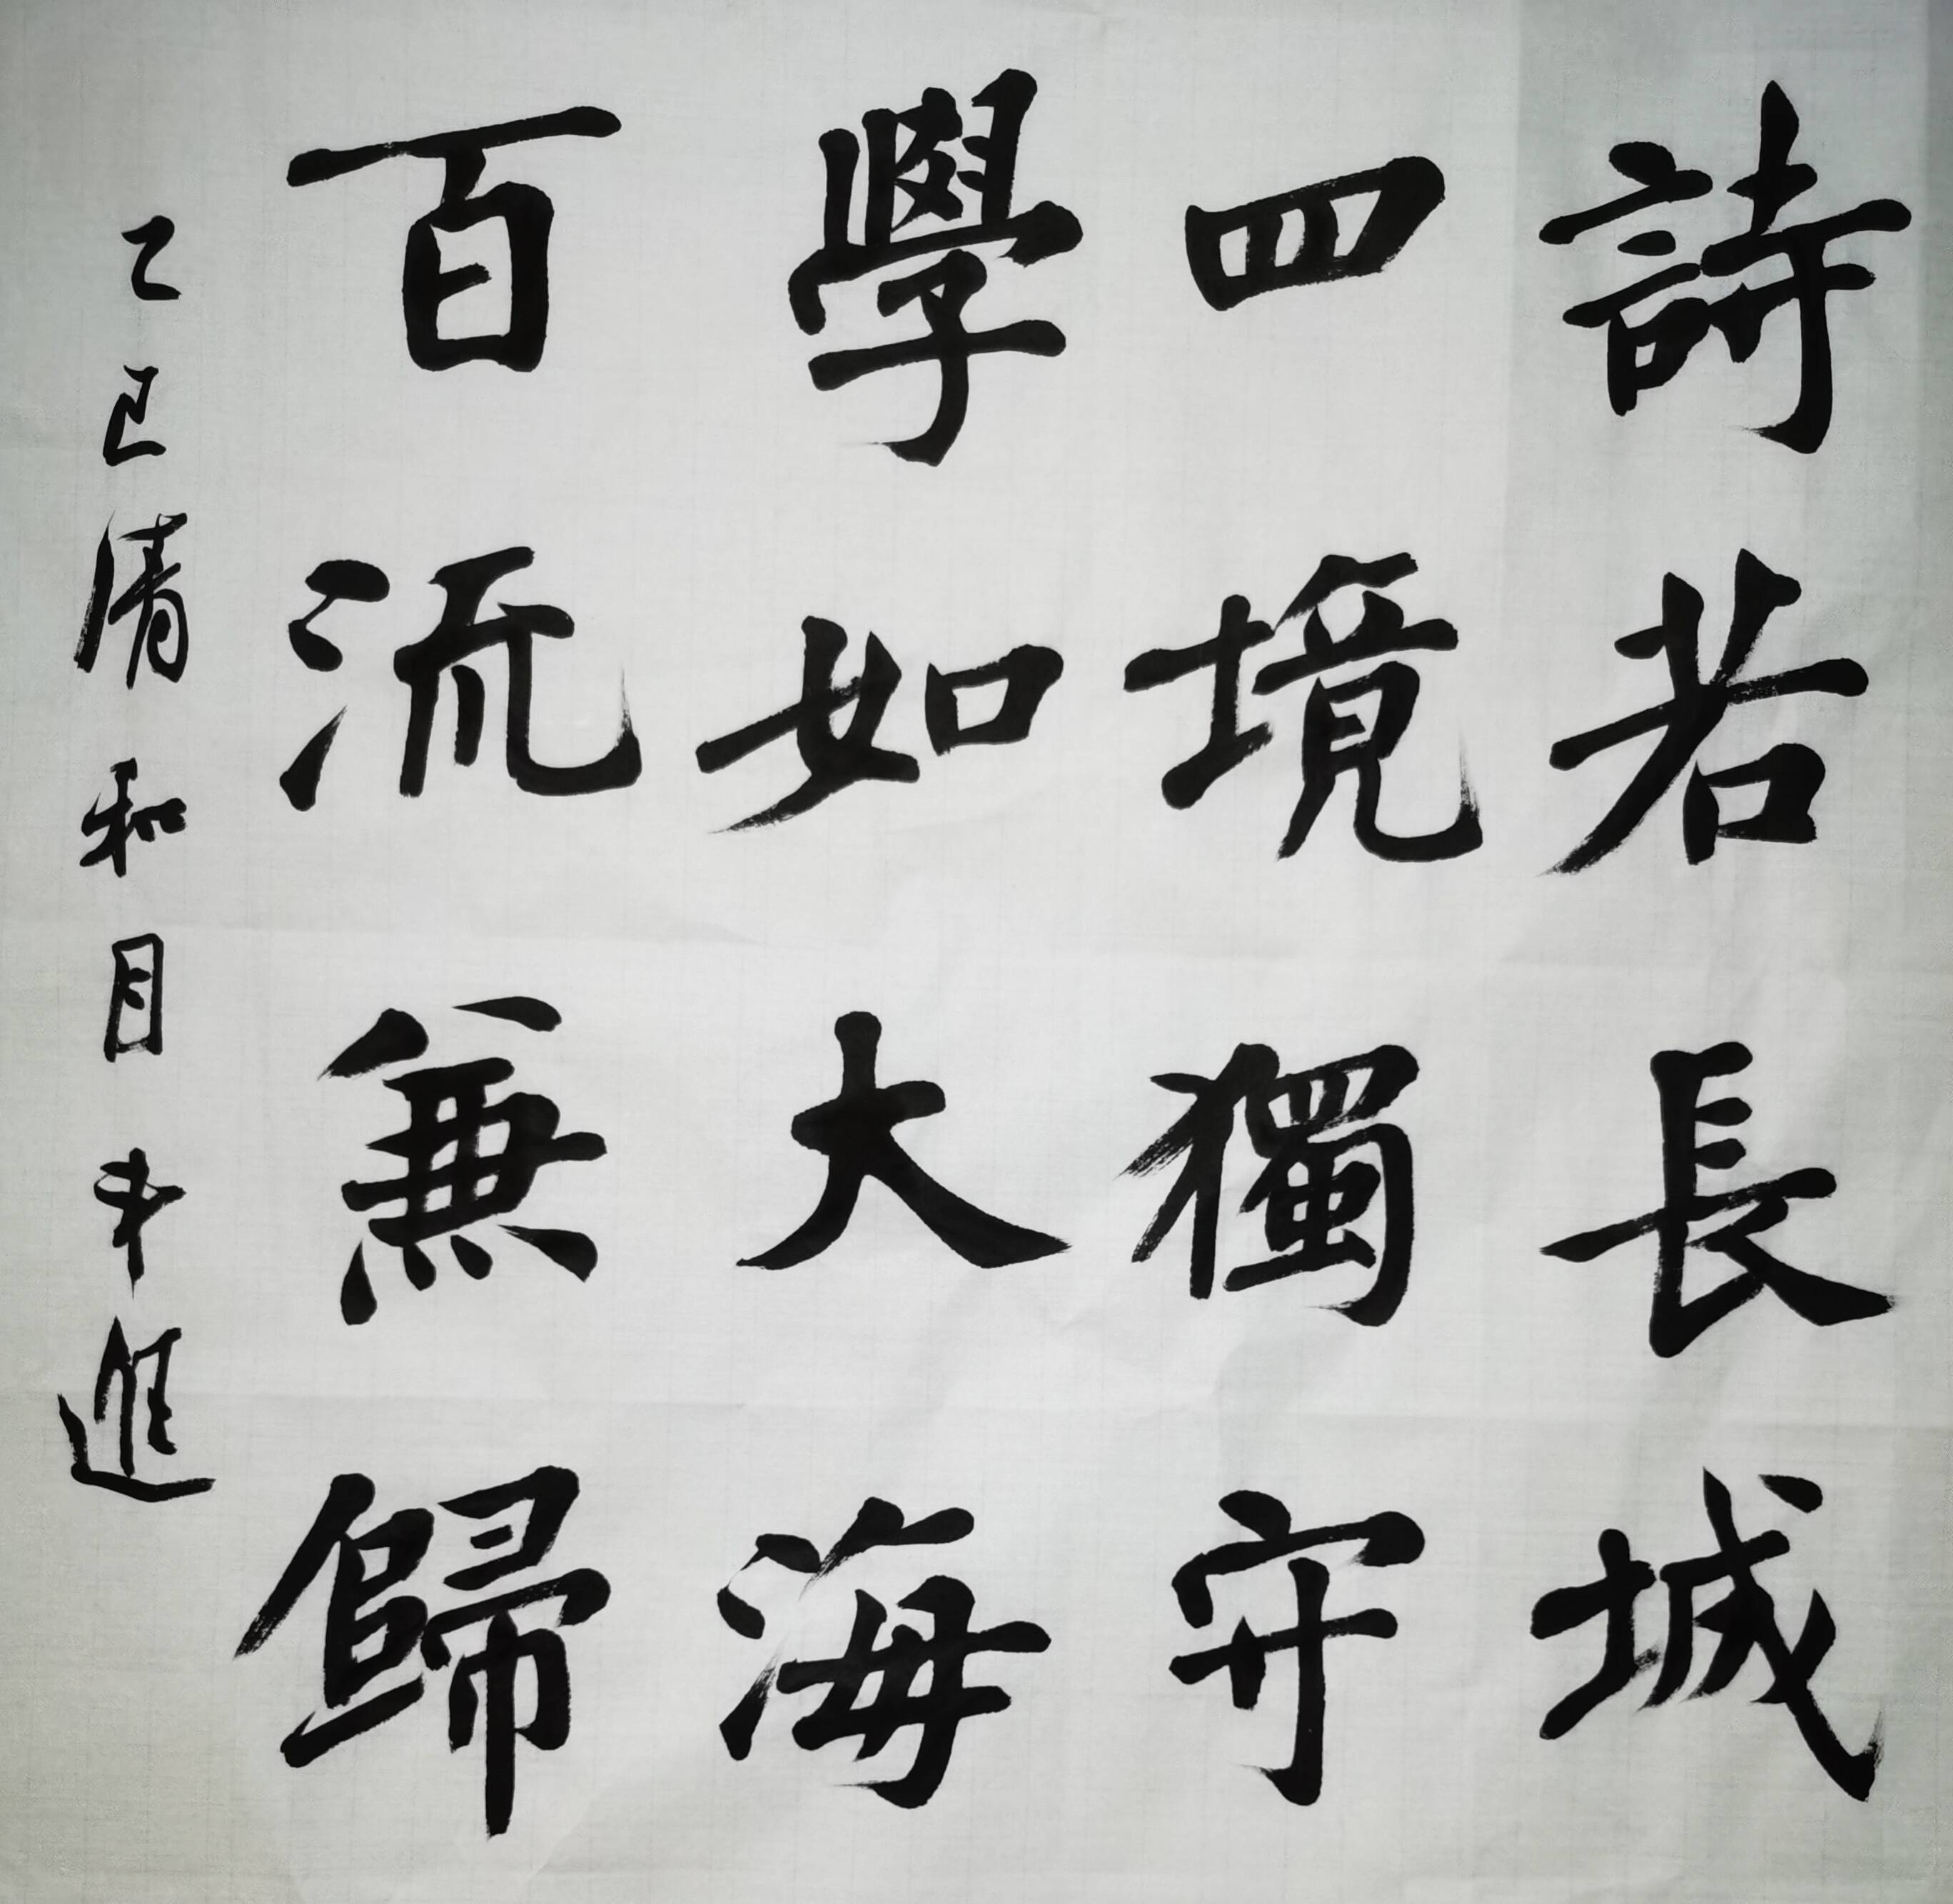 詩若長城
四境獨守
學如大海
百流兼歸
乙巳清和月中進